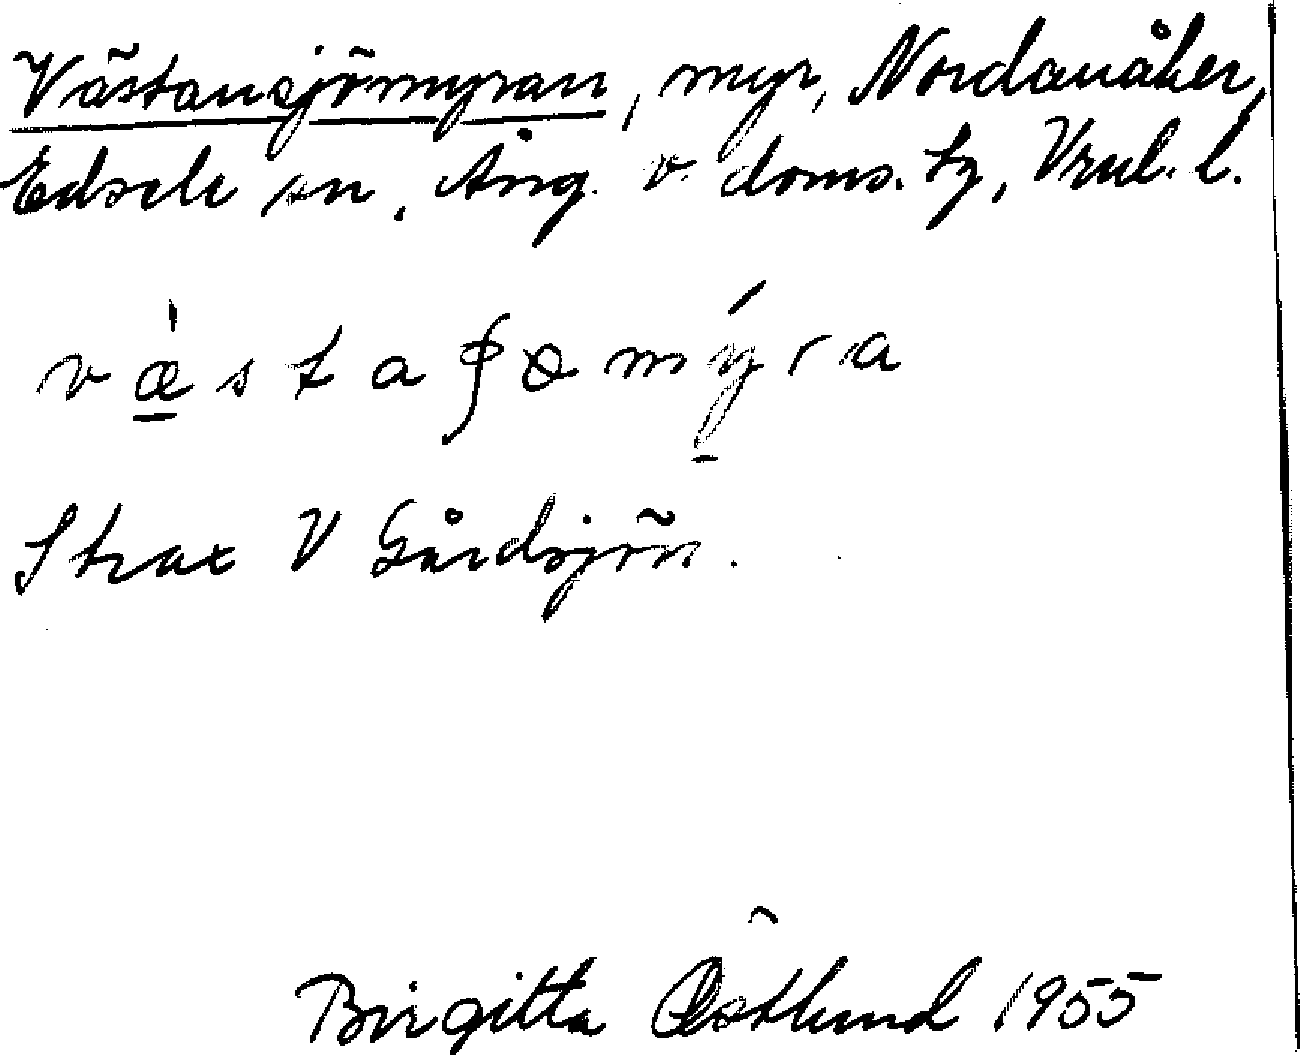 Västansjömyran, myr, Nordanåker,
Edsele sn, Ång. v. doms. tg, Vrnl. l.
Strax V Gårdsjön.
Birgitta Östlund 1955